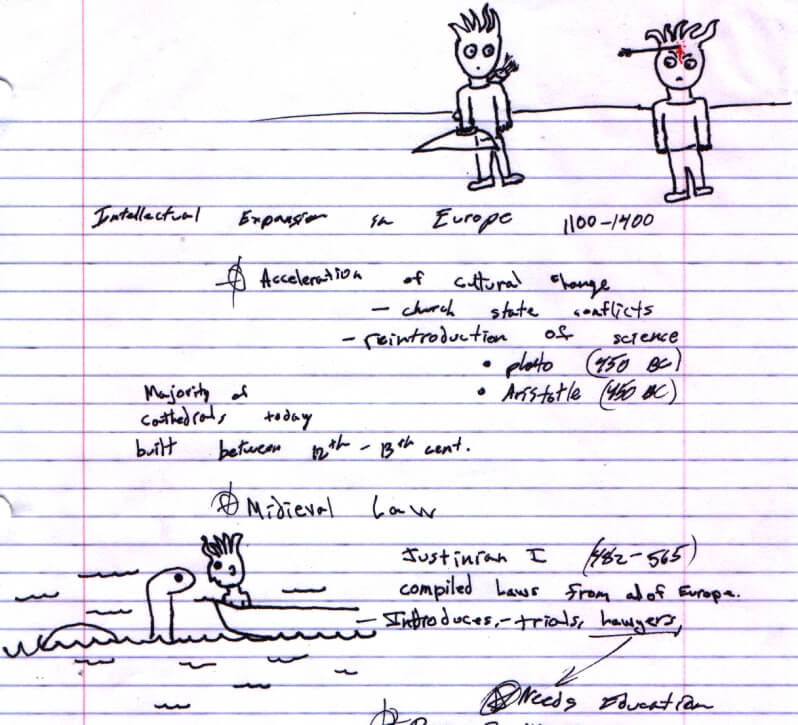 Intellectual Expansion in Europe 1100-1400
Acceleration of cultural change
- church state conflicts
- reintroduction of science
• plato (450 BC)
• Aristotle (450 BC)
Majority of
cathedrals today
built between 12th - 13th cent.
Midieval Law
Justinian I (482-565)
compiled Laws from all of Europe.
- Introduces, - trials, Lawyers,
Needs Education